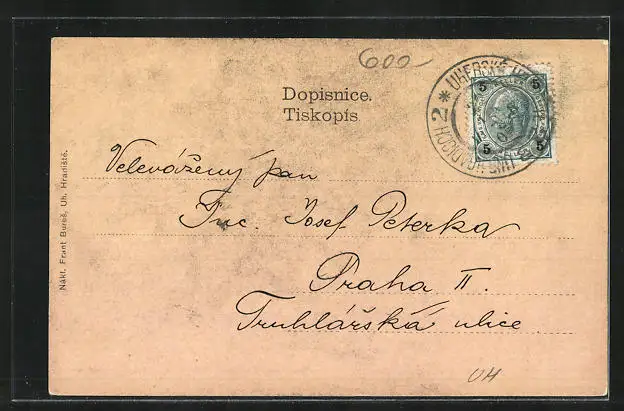 600-
Dopisnice.
Tiskopis
5 5
5 5
UHERSKÉ
HRADISCH 2 *
Velevážený pan
Inc. Josef Peterka
Praha II.
Truhlářská ulice
Nákl. Frant Bureš, Uh. Hradiště.
UH